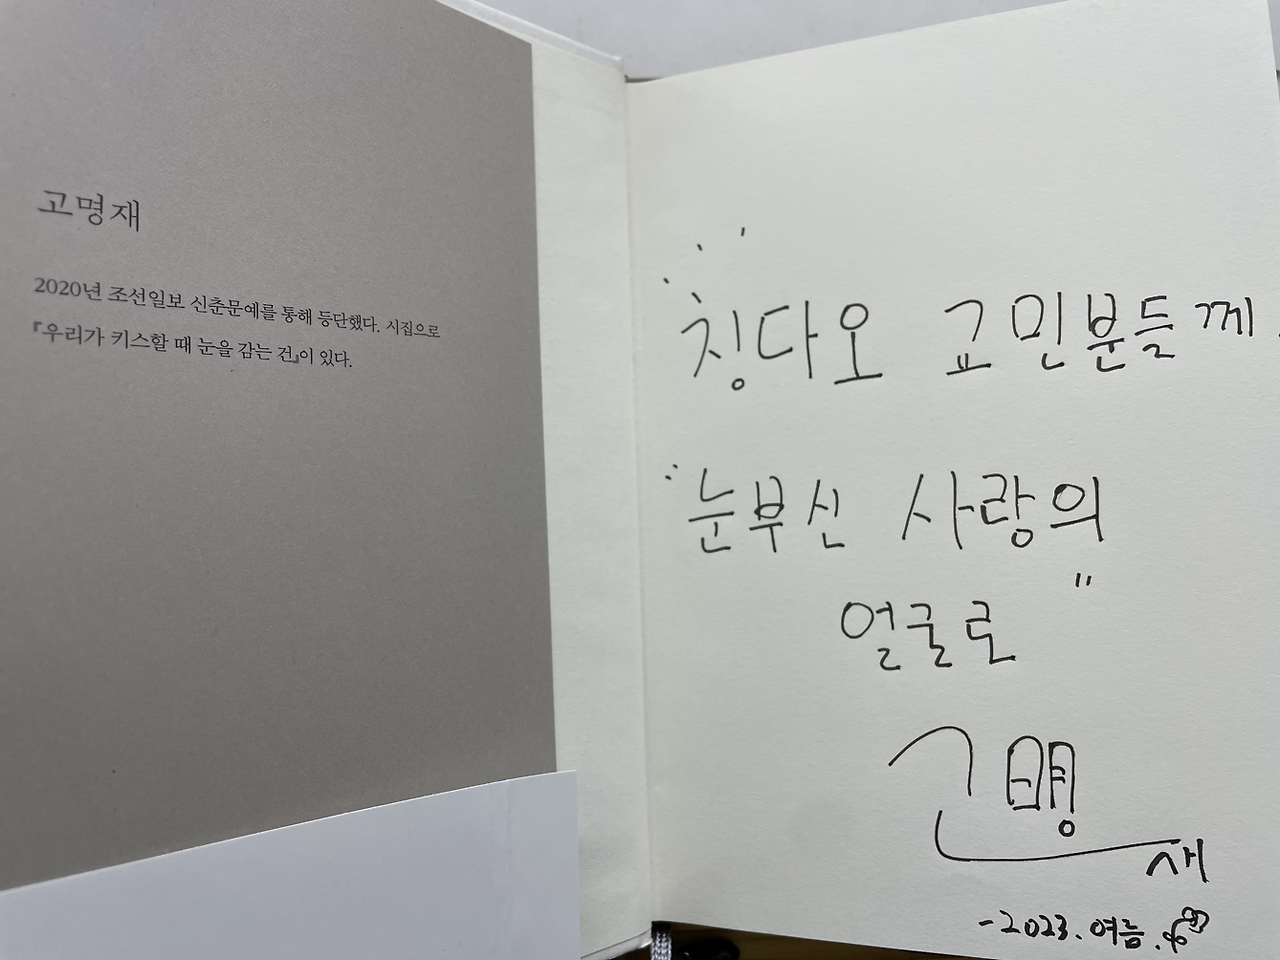 고명재
2020년 조선일보 신춘문예를 통해 등단했다. 시집으로
『우리가 키스할 때 눈을 감는 건』이 있다.
칭다오 교민분들께.
눈부신 사랑의
얼굴로"
고명
재
-2023.여름.